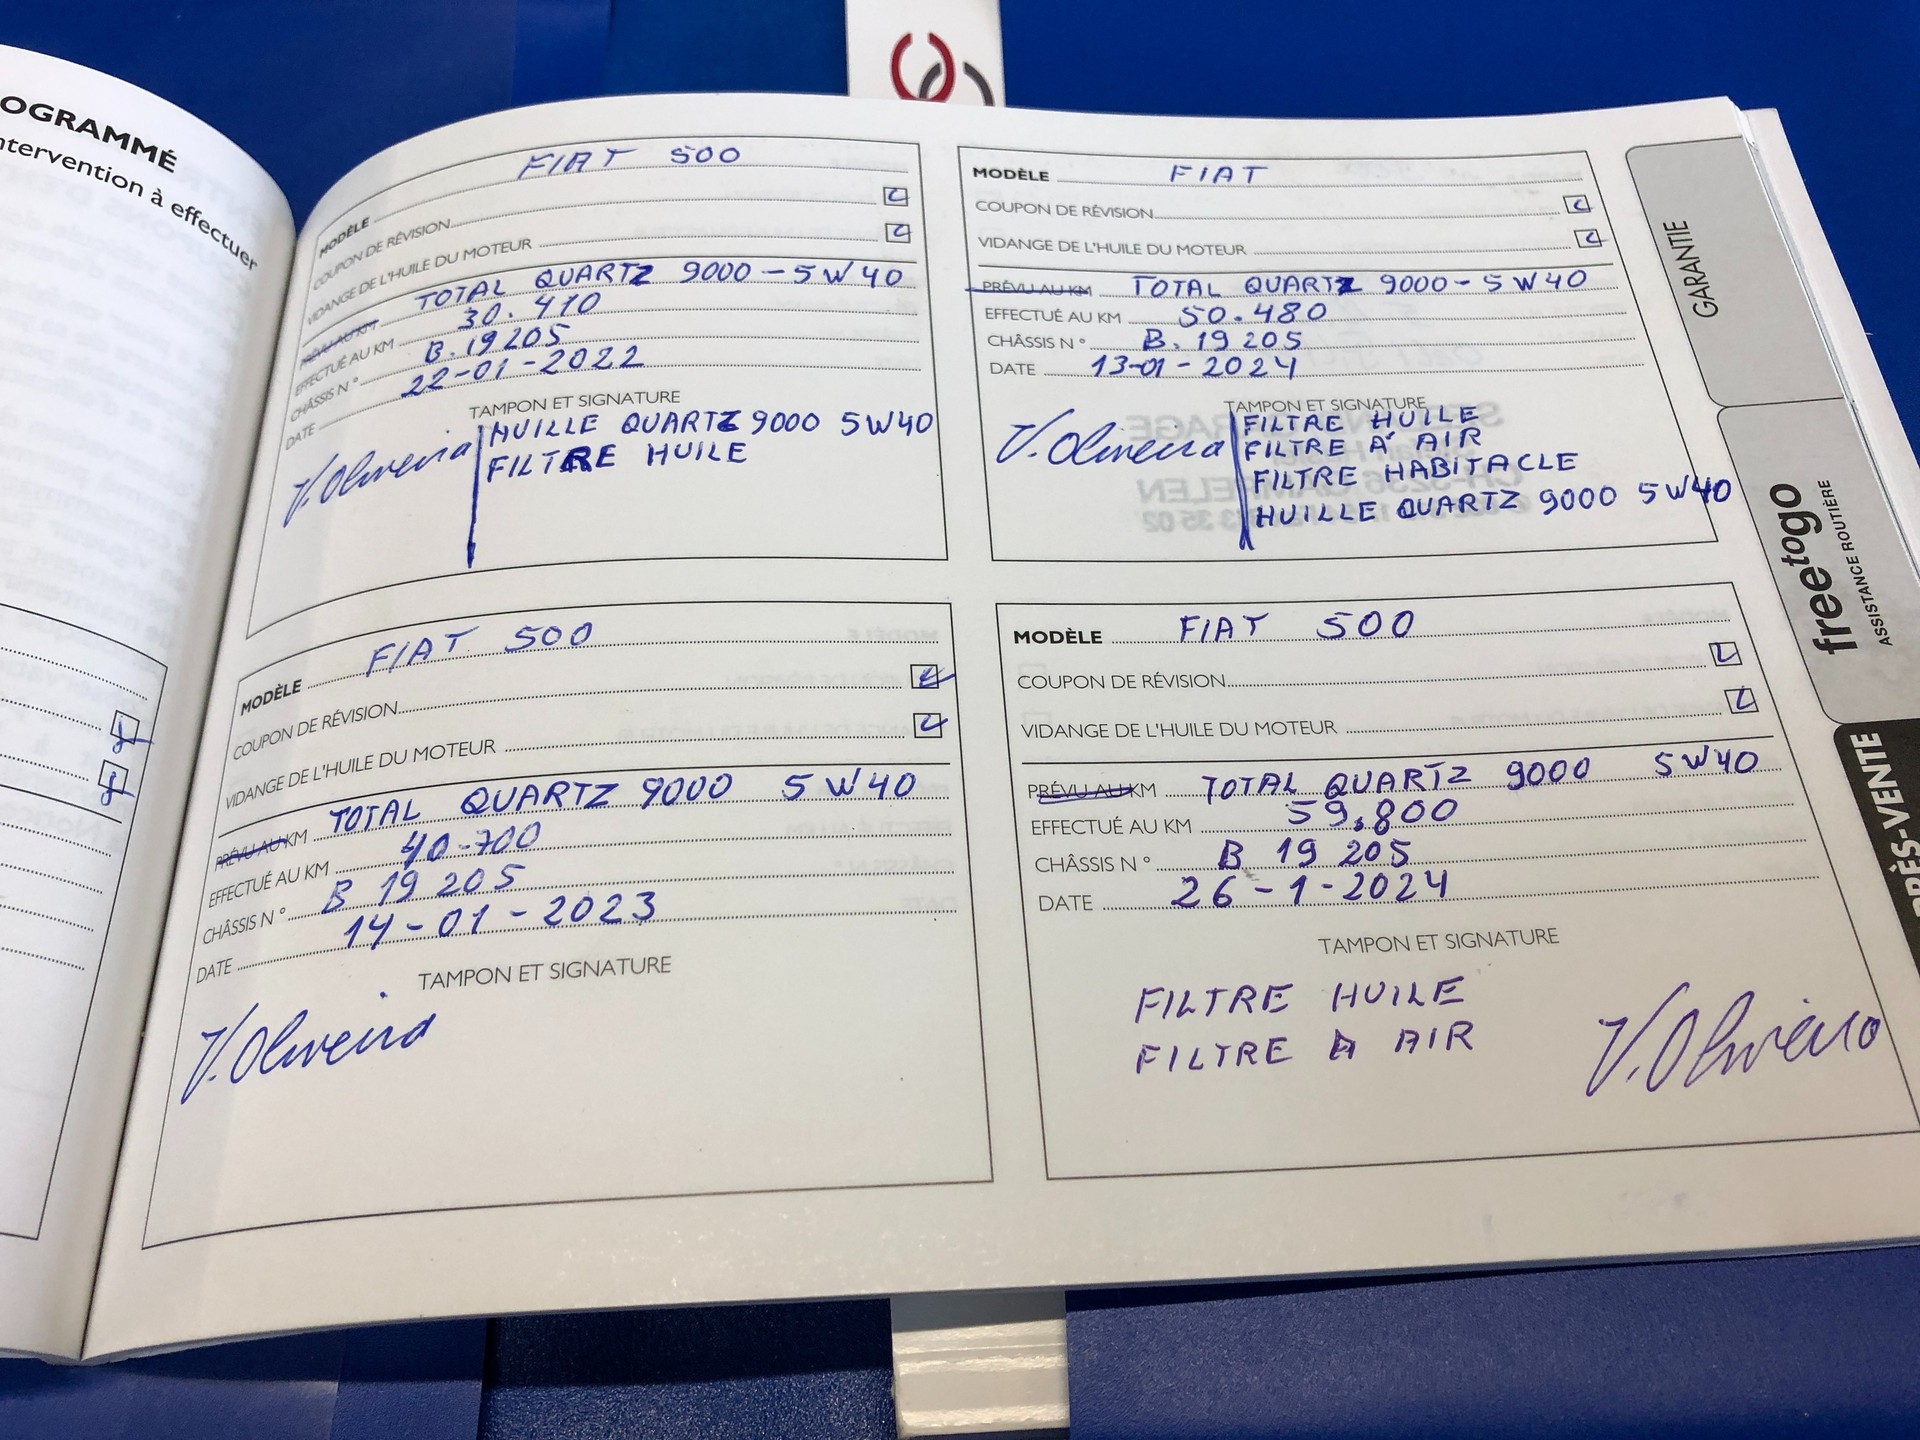 OGRAMMÉ
ntervention à effectuer
MODÈLE FIAT 500
COUPON DE RÉVISION
VIDANGE DE L'HUILE DU MOTEUR
PRÉVU AU KM TOTAL QUARTZ 9000-5W40
EFFECTUÉ AU KM 30.410
CHÂSSIS N° B.19205
DATE 22-01-2022
TAMPON ET SIGNATURE
V.Oliveira HUILLE QUARTZ 9000 5W40
FILTRE HUILE
MODÈLE FIAT 500
COUPON DE RÉVISION
VIDANGE DE L'HUILE DU MOTEUR
PRÉVU AU KM TOTAL QUARTZ 9000 5W40
EFFECTUÉ AU KM 40-700
CHÂSSIS N° B 19 205
DATE 14-01-2023
TAMPON ET SIGNATURE
V.Oliveira
MODÈLE FIAT
COUPON DE RÉVISION
VIDANGE DE L'HUILE DU MOTEUR
PRÉVU AU KM TOTAL QUARTZ 9000-5W40
EFFECTUÉ AU KM 50.480
CHÂSSIS N° B. 19 205
DATE 13-01-2024
TAMPON ET SIGNATURE
V.Oliveira FILTRE HUILE
FILTRE A' AIR
FILTRE HABITACLE
HUILLE QUARTZ 9000 5W40
MODÈLE FIAT 500
COUPON DE RÉVISION
VIDANGE DE L'HUILE DU MOTEUR
PRÉVU AU KM TOTAL QUARTZ 9000 5W40
EFFECTUÉ AU KM 59.800
CHÂSSIS N° B 19 205
DATE 26-1-2024
TAMPON ET SIGNATURE
FILTRE HUILE
FILTRE A AIR
V.Oliveira
GARANTIE
freetogo
ASSISTANCE ROUTIÈRE
PRÈS-VENTE